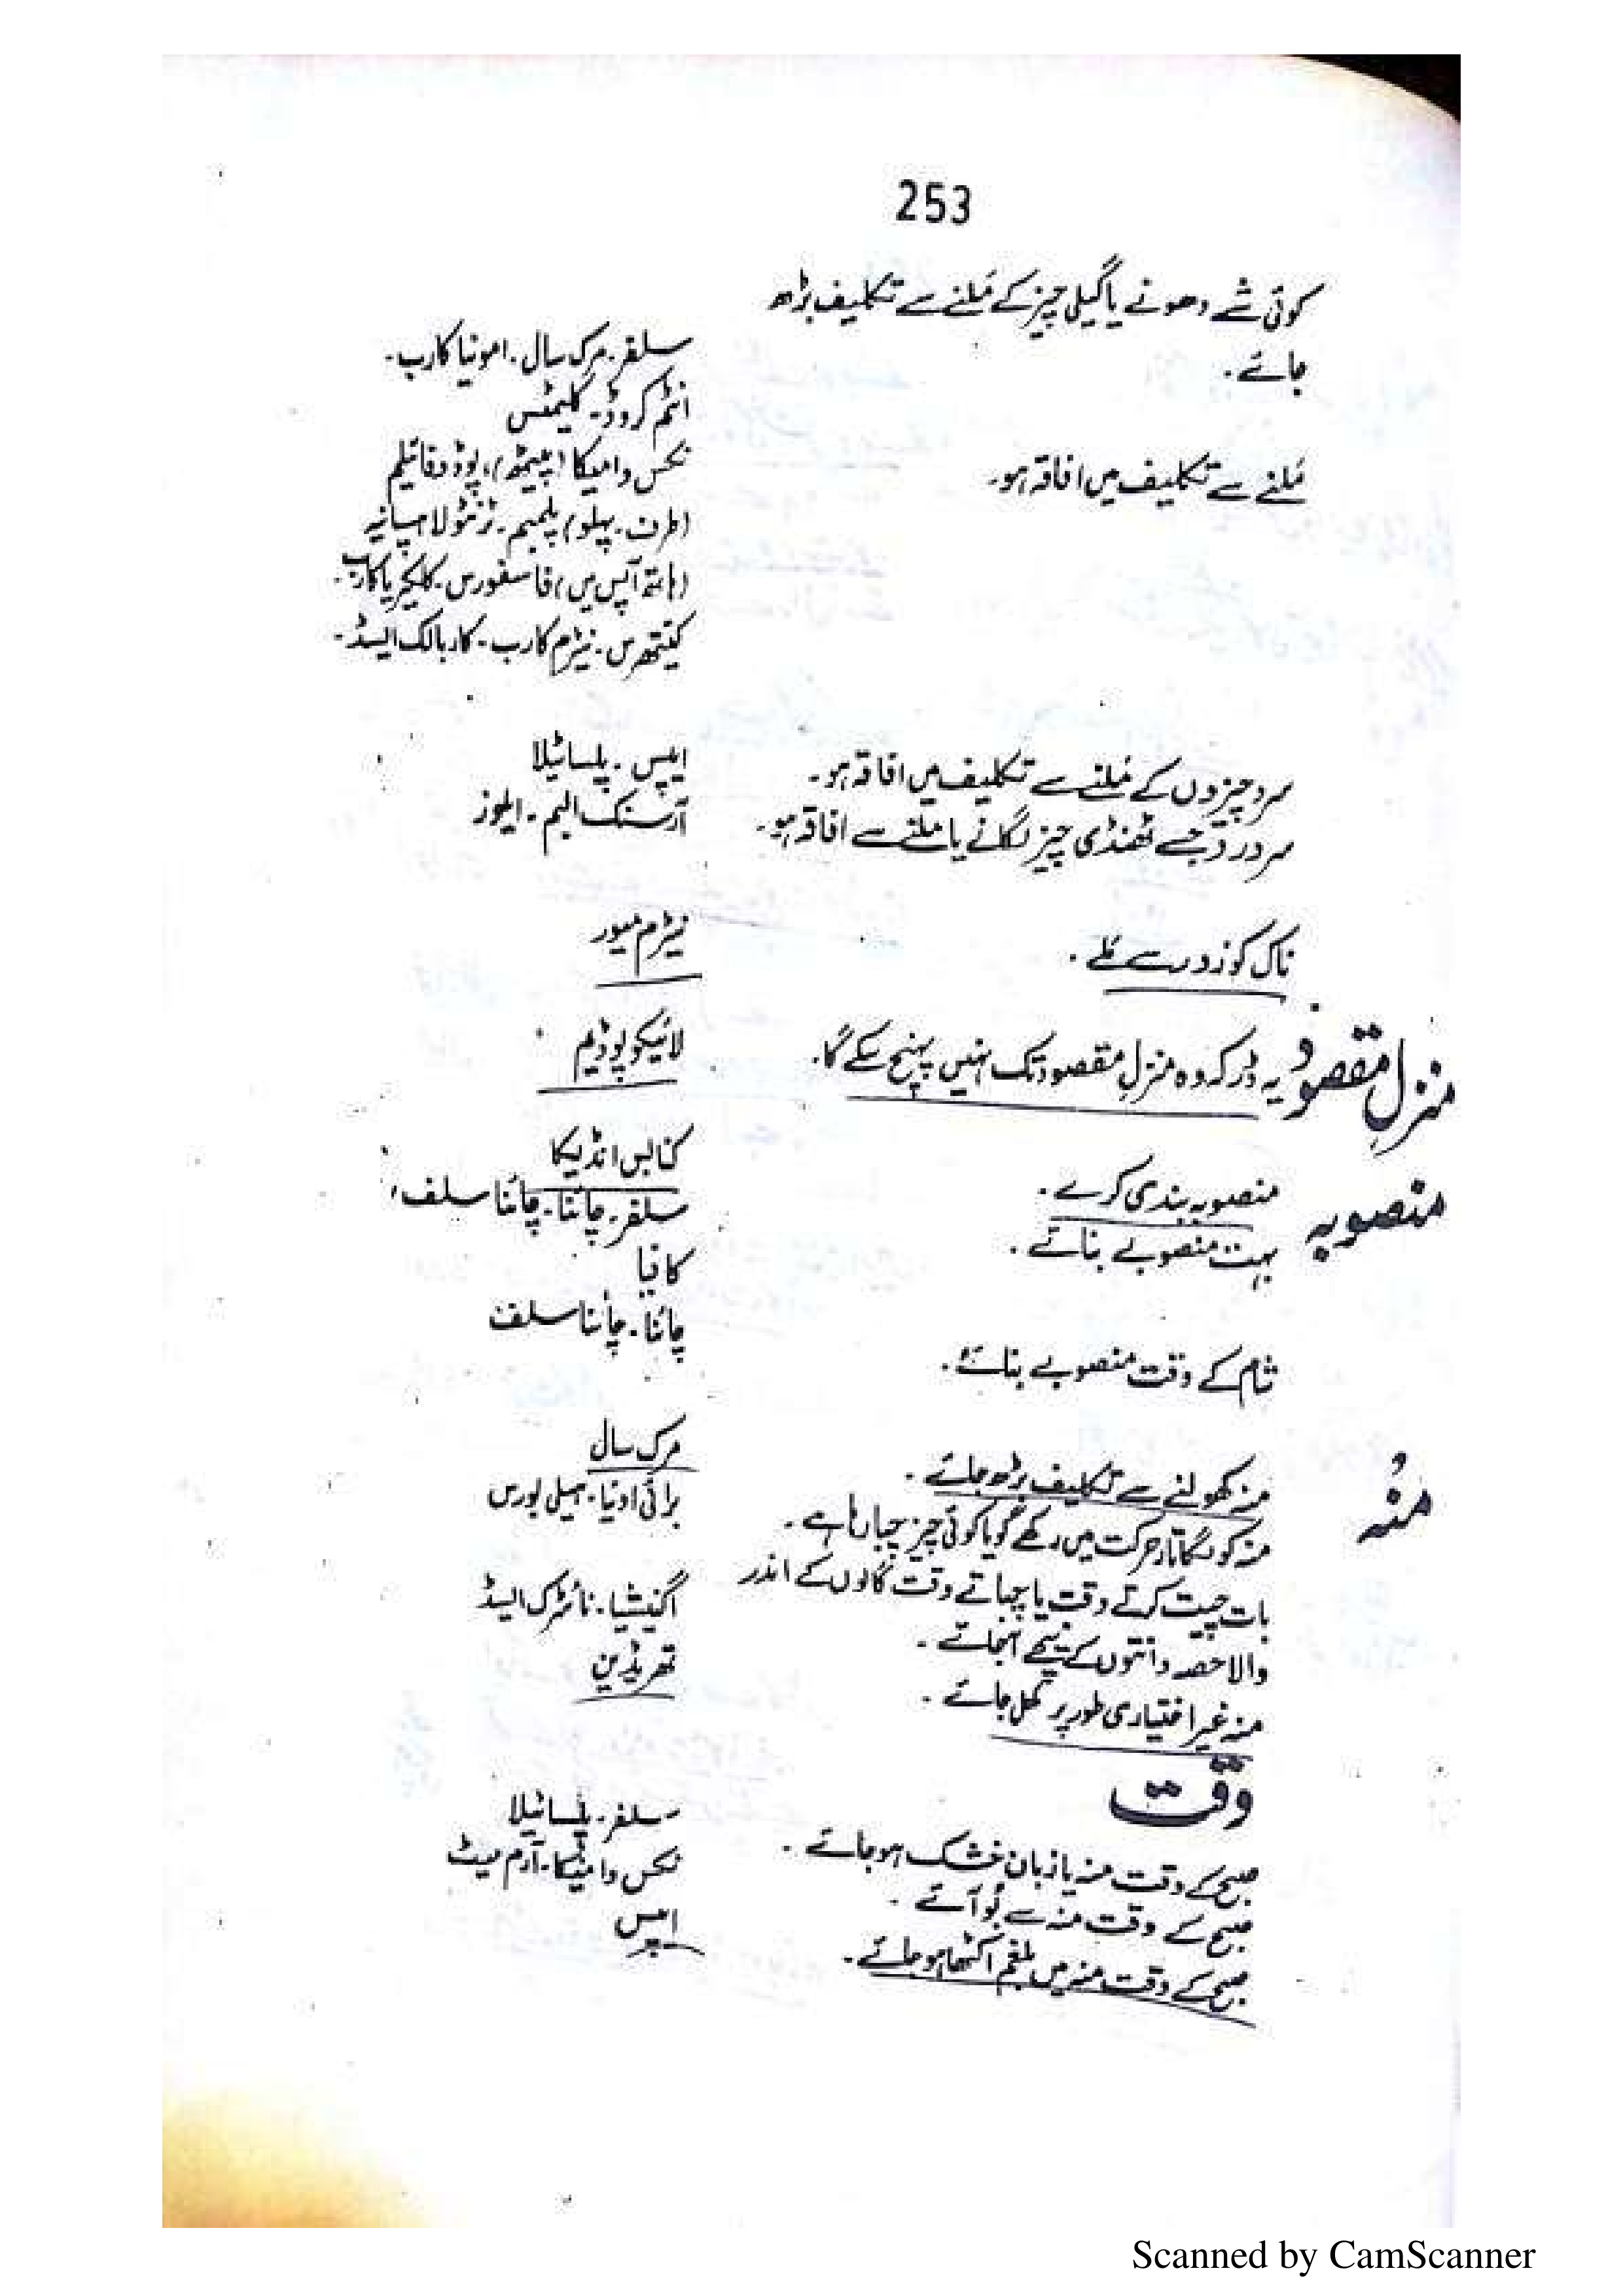 253
کوئی شے دھونے یا گیلی چیز کے مَلنے سے تکلیف بڑھ
جائے۔
سلفر۔ مرک سال۔ امونیا کارب۔
انٹم کروڈ۔ کلیمٹس
مَلنے سے تکلیف میں افاقہ ہو۔
نکس وامیکا (پیٹھ)، پوڈوفائیلم
(طرف۔ پہلو) پلمبم۔ ٹرنٹولا ہسپانیہ
(ہاتھ آپس میں) فاسفورس۔ کلکیریا کارب۔
کینتھرس۔ نیٹرم کارب۔ کاربالک ایسڈ۔
سرد چیزوں کے مَلنے سے تکلیف میں افاقہ ہو۔
ایپس۔ پلساٹیلا
سر درد جسے ٹھنڈی چیز لگانے یا ملنے سے افاقہ ہو۔
آرسنک البم۔ ایلوز
ناک کو زور سے مَلے۔
نیٹرم میور
منزلِ مقصود
یہ ڈر کہ وہ منزلِ مقصود تک نہیں پہنچ سکے گا۔
لائیکوپوڈیم
منصوبہ
منصوبہ بندی کرے۔
کنابس انڈیکا
بہت منصوبے بنائے۔
سلفر۔ چائنا۔ چائنا سلف،
کافیا
شام کے وقت منصوبے بنائے۔
چائنا۔ چائنا سلف
منُہ
منہ کھولنے سے تکلیف بڑھ جائے۔
مرک سال
منہ کو لگاتار حرکت میں رکھے گویا کوئی چیز چبا رہا ہے۔
برائی اونیا۔ ہیلی بورس
بات چیت کرتے وقت یا چباتے وقت گالوں کے اندر
والا حصہ دانتوں کے نیچے آ جائے۔
اگنیشیا۔ نائٹرک ایسڈ
منہ غیر اختیاری طور پر کھل جائے۔
تھریڈین
وقت
صبح کے وقت منہ یا زبان خشک ہو جائے۔
سلفر۔ پلساٹیلا
صبح کے وقت منہ سے بُو آئے۔
نکس وامیکا۔ آرم میٹ
صبح کے وقت منہ میں بلغم اکٹھا ہو جائے۔
ایپس
Scanned by CamScanner